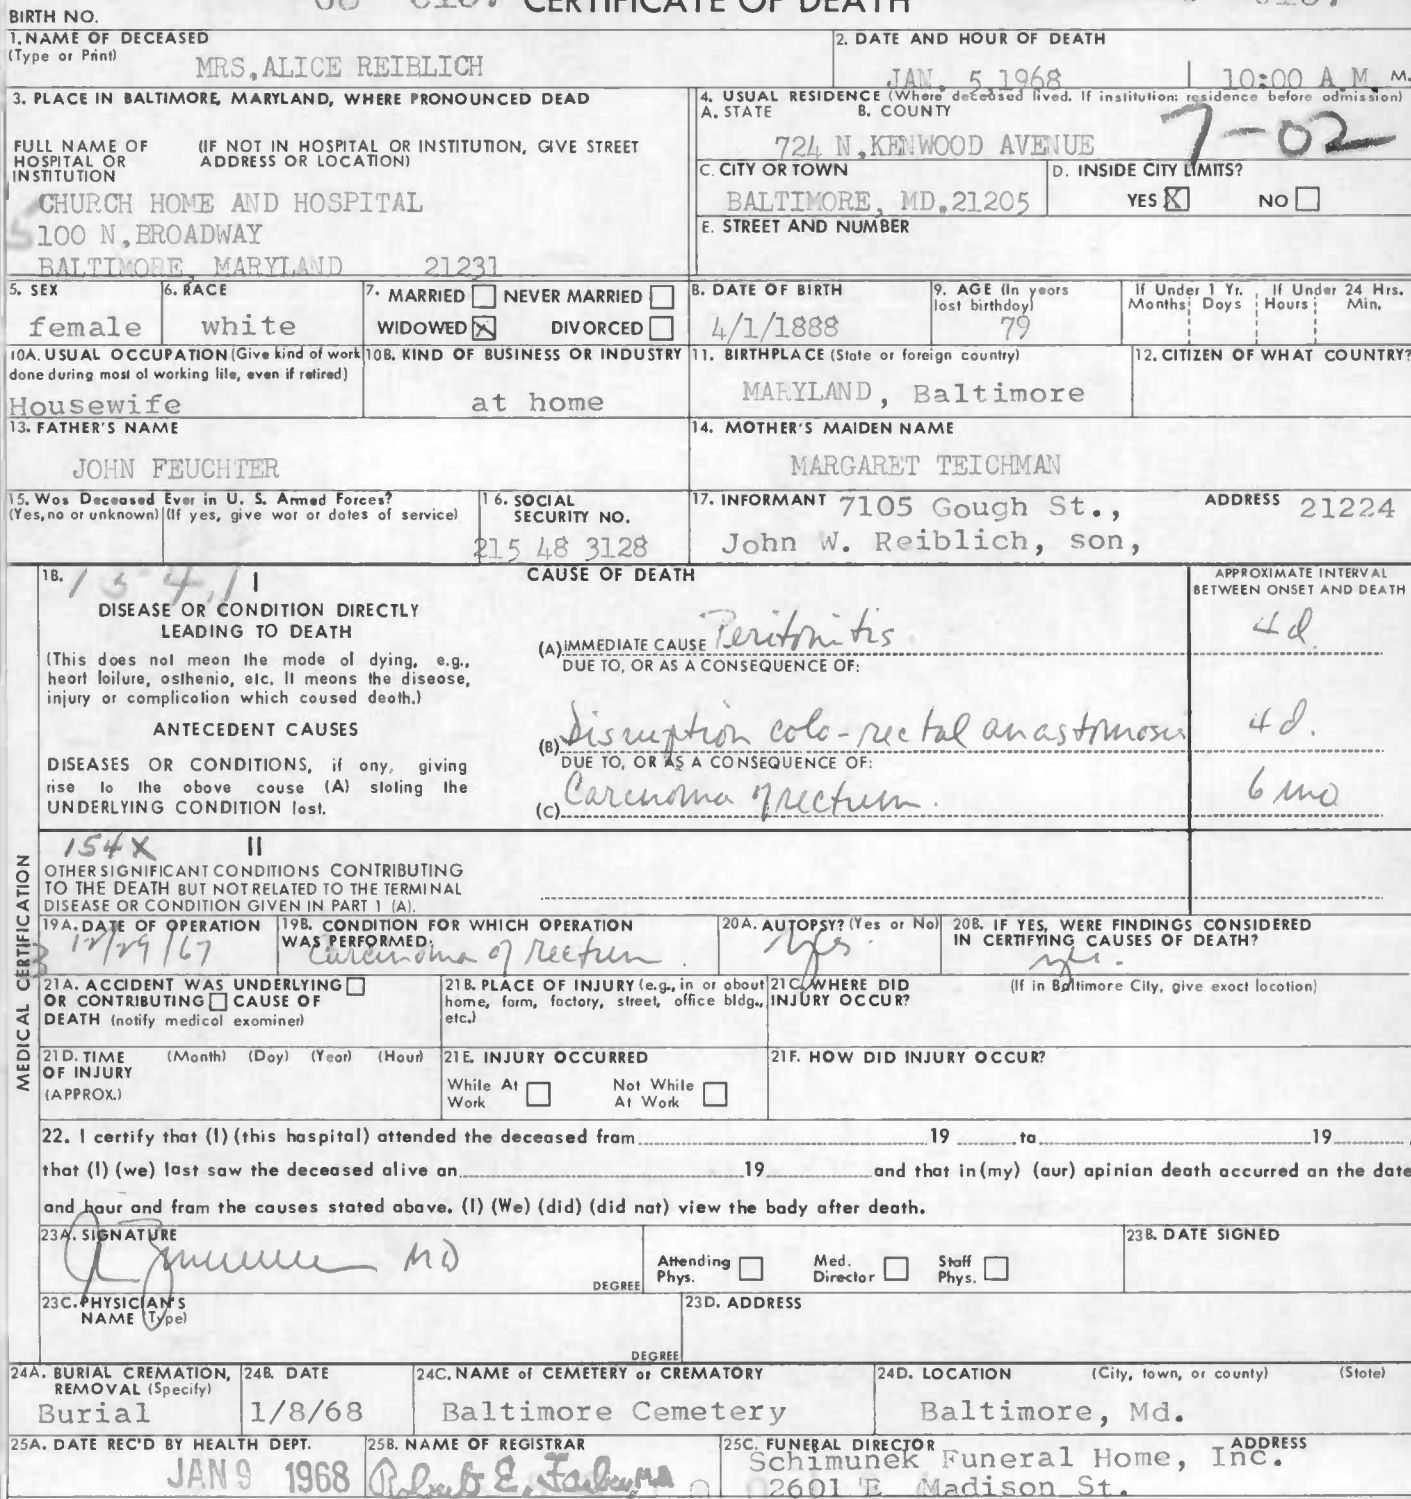 CERTIFICATE OF DEATH
BIRTH NO.
1. NAME OF DECEASED
(Type or Print)
MRS, ALICE REIBLICH
2. DATE AND HOUR OF DEATH
JAN. 5,1968 10:00 A.M. M.
3. PLACE IN BALTIMORE, MARYLAND, WHERE PRONOUNCED DEAD
FULL NAME OF HOSPITAL OR INSTITUTION
(IF NOT IN HOSPITAL OR INSTITUTION, GIVE STREET ADDRESS OR LOCATION)
CHURCH HOME AND HOSPITAL
100 N,BROADWAY
BALTIMORE, MARYLAND 21231
4. USUAL RESIDENCE (Where deceased lived. If institution: residence before admission)
A. STATE B. COUNTY
7-02
724 N,KENWOOD AVENUE
C. CITY OR TOWN
BALTIMORE, MD,21205
D. INSIDE CITY LIMITS?
YES X NO
E. STREET AND NUMBER
5. SEX
female
6. RACE
white
7. MARRIED NEVER MARRIED
WIDOWED X DIVORCED
8. DATE OF BIRTH
4/1/1888
9. AGE (In years last birthday)
79
If Under 1 Yr.
Months Days
If Under 24 Hrs.
Hours Min.
10A. USUAL OCCUPATION (Give kind of work done during most of working life, even if retired)
Housewife
10B. KIND OF BUSINESS OR INDUSTRY
at home
11. BIRTHPLACE (State or foreign country)
MARYLAND, Baltimore
12. CITIZEN OF WHAT COUNTRY?
13. FATHER'S NAME
JOHN FEUCHTER
14. MOTHER'S MAIDEN NAME
MARGARET TEICHMAN
15. Was Deceased Ever in U. S. Armed Forces?
(Yes, no or unknown) (If yes, give war or dates of service)
16. SOCIAL SECURITY NO.
215 48 3128
17. INFORMANT 7105 Gough St., ADDRESS 21224
John W. Reiblich, son,
18. 154.1 I
CAUSE OF DEATH
APPROXIMATE INTERVAL
BETWEEN ONSET AND DEATH
DISEASE OR CONDITION DIRECTLY
LEADING TO DEATH
(This does not mean the mode of dying, e.g.,
heart failure, asthenia, etc. It means the disease,
injury or complication which caused death.)
(A) IMMEDIATE CAUSE Peritonitis 4 d.
DUE TO, OR AS A CONSEQUENCE OF:
ANTECEDENT CAUSES
DISEASES OR CONDITIONS, if any, giving
rise to the above cause (A) stating the
UNDERLYING CONDITION last.
(B) Disruption colo-rectal anastomosis 4 d.
DUE TO, OR AS A CONSEQUENCE OF:
(C) Carcinoma of rectum. 6 mo
MEDICAL CERTIFICATION
154X II
OTHER SIGNIFICANT CONDITIONS CONTRIBUTING
TO THE DEATH BUT NOT RELATED TO THE TERMINAL
DISEASE OR CONDITION GIVEN IN PART 1 (A).
19A. DATE OF OPERATION
12/29/67
19B. CONDITION FOR WHICH OPERATION
WAS PERFORMED:
Carcinoma of Rectum.
20A. AUTOPSY? (Yes or No)
yes.
20B. IF YES, WERE FINDINGS CONSIDERED
IN CERTIFYING CAUSES OF DEATH?
yes.
21A. ACCIDENT WAS UNDERLYING
OR CONTRIBUTING CAUSE OF
DEATH (notify medical examiner)
21B. PLACE OF INJURY (e.g., in or about
home, farm, factory, street, office bldg.,
etc.)
21C. WHERE DID
INJURY OCCUR?
(If in Baltimore City, give exact location)
21D. TIME (Month) (Day) (Year) (Hour)
OF INJURY
(APPROX.)
21E. INJURY OCCURRED
While At Work Not While At Work
21F. HOW DID INJURY OCCUR?
22. I certify that (I) (this hospital) attended the deceased from 19 to 19,
that (I) (we) last saw the deceased alive on 19 and that in (my) (our) opinion death occurred on the date
and hour and from the causes stated above. (I) (We) (did) (did not) view the body after death.
23A. SIGNATURE
MD
DEGREE
Attending Phys. Med. Director Staff Phys.
23B. DATE SIGNED
23C. PHYSICIAN'S
NAME (Type)
DEGREE
23D. ADDRESS
24A. BURIAL CREMATION,
REMOVAL (Specify)
Burial
24B. DATE
1/8/68
24C. NAME of CEMETERY or CREMATORY
Baltimore Cemetery
24D. LOCATION (City, town, or county) (State)
Baltimore, Md.
25A. DATE REC'D BY HEALTH DEPT.
JAN 9 1968
25B. NAME OF REGISTRAR
Robert E. Farber, MD
25C. FUNERAL DIRECTOR ADDRESS
Schimunek Funeral Home, Inc.
2601 E Madison St.